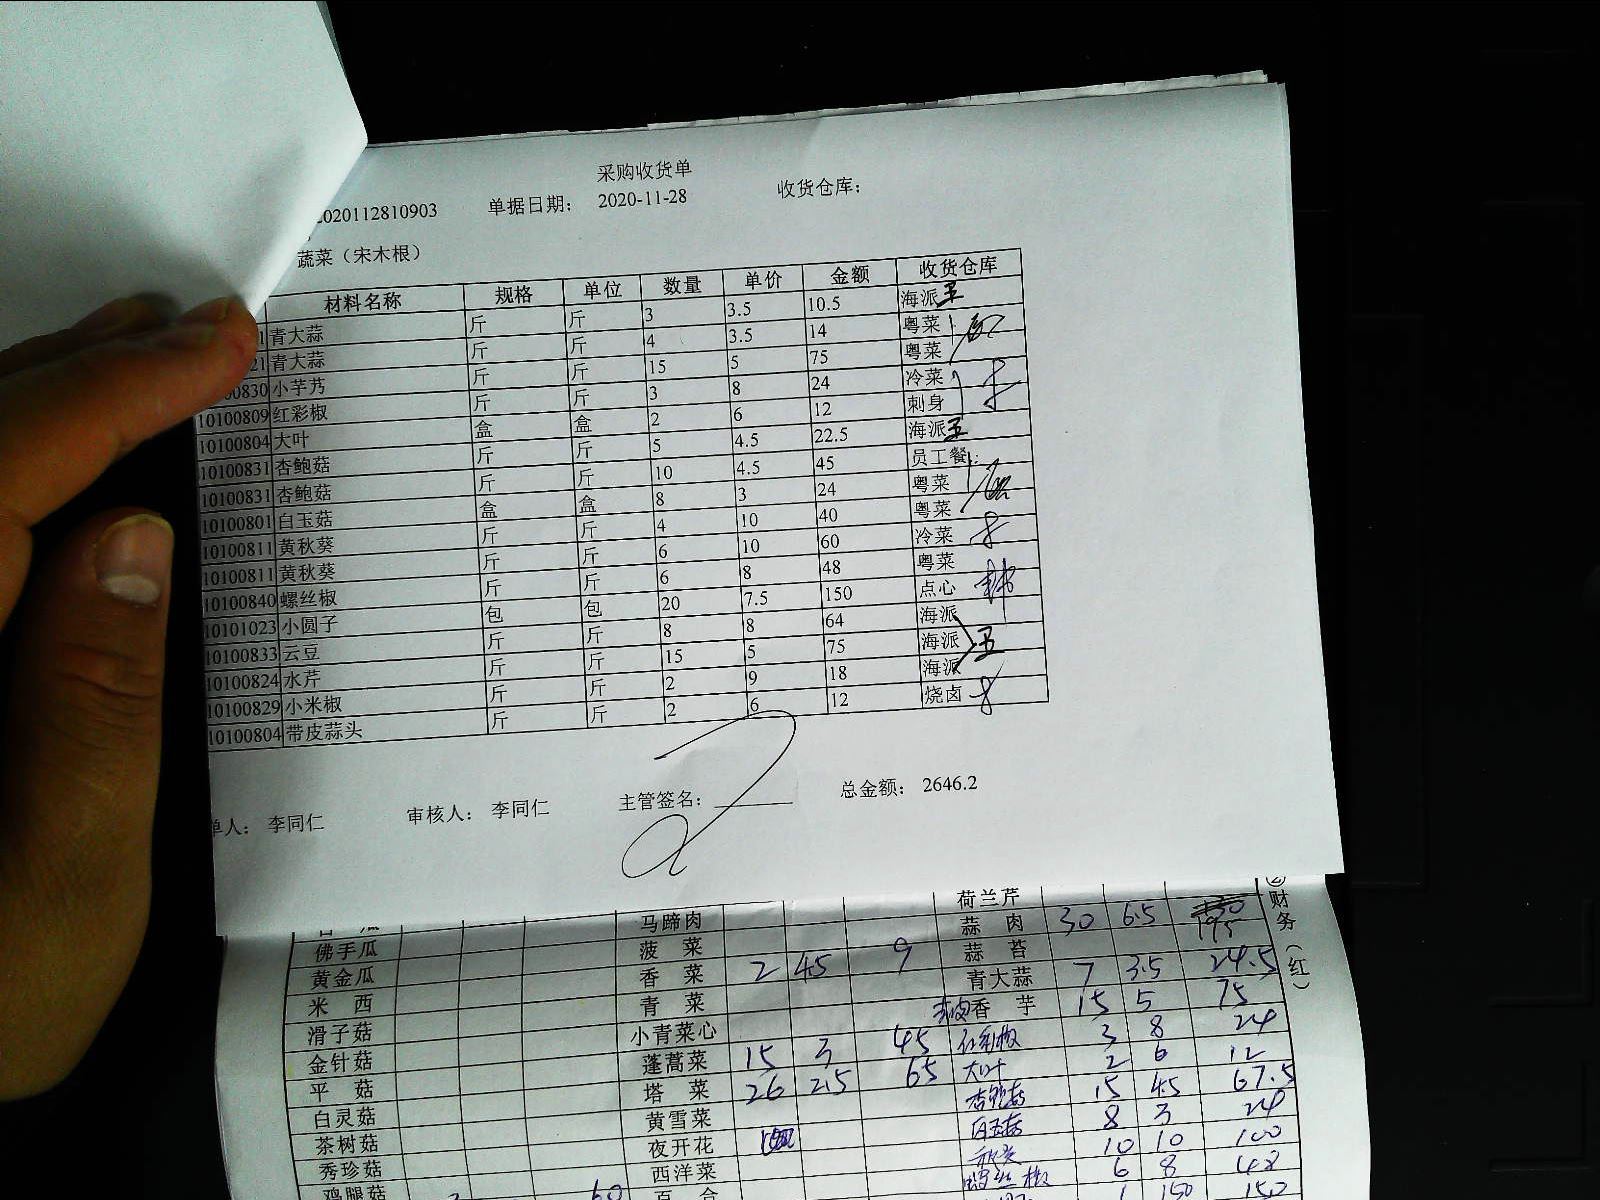 采购收货单
2020112810903 单据日期： 2020-11-28 收货仓库：
蔬菜（宋木根）
材料名称 规格 单位 数量 单价 金额 收货仓库
1 青大蒜 斤 斤 3 3.5 10.5 海派 王
21 青大蒜 斤 斤 4 3.5 14 粤菜
00830 小芋艿 斤 斤 15 5 75 粤菜
10100809 红彩椒 斤 斤 3 8 24 冷菜
10100804 大叶 盒 盒 2 6 12 刺身
10100831 杏鲍菇 斤 斤 5 4.5 22.5 海派 王
10100831 杏鲍菇 斤 斤 10 4.5 45 员工餐
10100801 白玉菇 盒 盒 8 3 24 粤菜
10100811 黄秋葵 斤 斤 4 10 40 粤菜
10100811 黄秋葵 斤 斤 6 10 60 冷菜
10100840 螺丝椒 斤 斤 6 8 48 粤菜
10101023 小圆子 包 包 20 7.5 150 点心
10100833 云豆 斤 斤 8 8 64 海派
10100824 水芹 斤 斤 15 5 75 海派 王
10100829 小米椒 斤 斤 2 9 18 海派
10100804 带皮蒜头 斤 斤 2 6 12 烧卤
单人： 李同仁 审核人： 李同仁 主管签名： 总金额： 2646.2
荷兰芹
马蹄肉 蒜肉 30 6.5 195
佛手瓜 菠菜 蒜苔
黄金瓜 香菜 2 4.5 9 青大蒜 7 3.5 24.5
米西 青菜 香芋 15 5 75
滑子菇 小青菜心 红彩椒 3 8 24
金针菇 蓬蒿菜 15 3 45 大叶 2 6 12
平菇 塔菜 26 2.5 65 杏鲍菇 15 4.5 67.5
白灵菇 黄雪菜 白玉菇 8 3 24
茶树菇 夜开花 秋葵 10 10 100
秀珍菇 西洋菜 螺丝椒 6 8 48
鸡腿菇 60 百合 1 150 150
②财务（红）